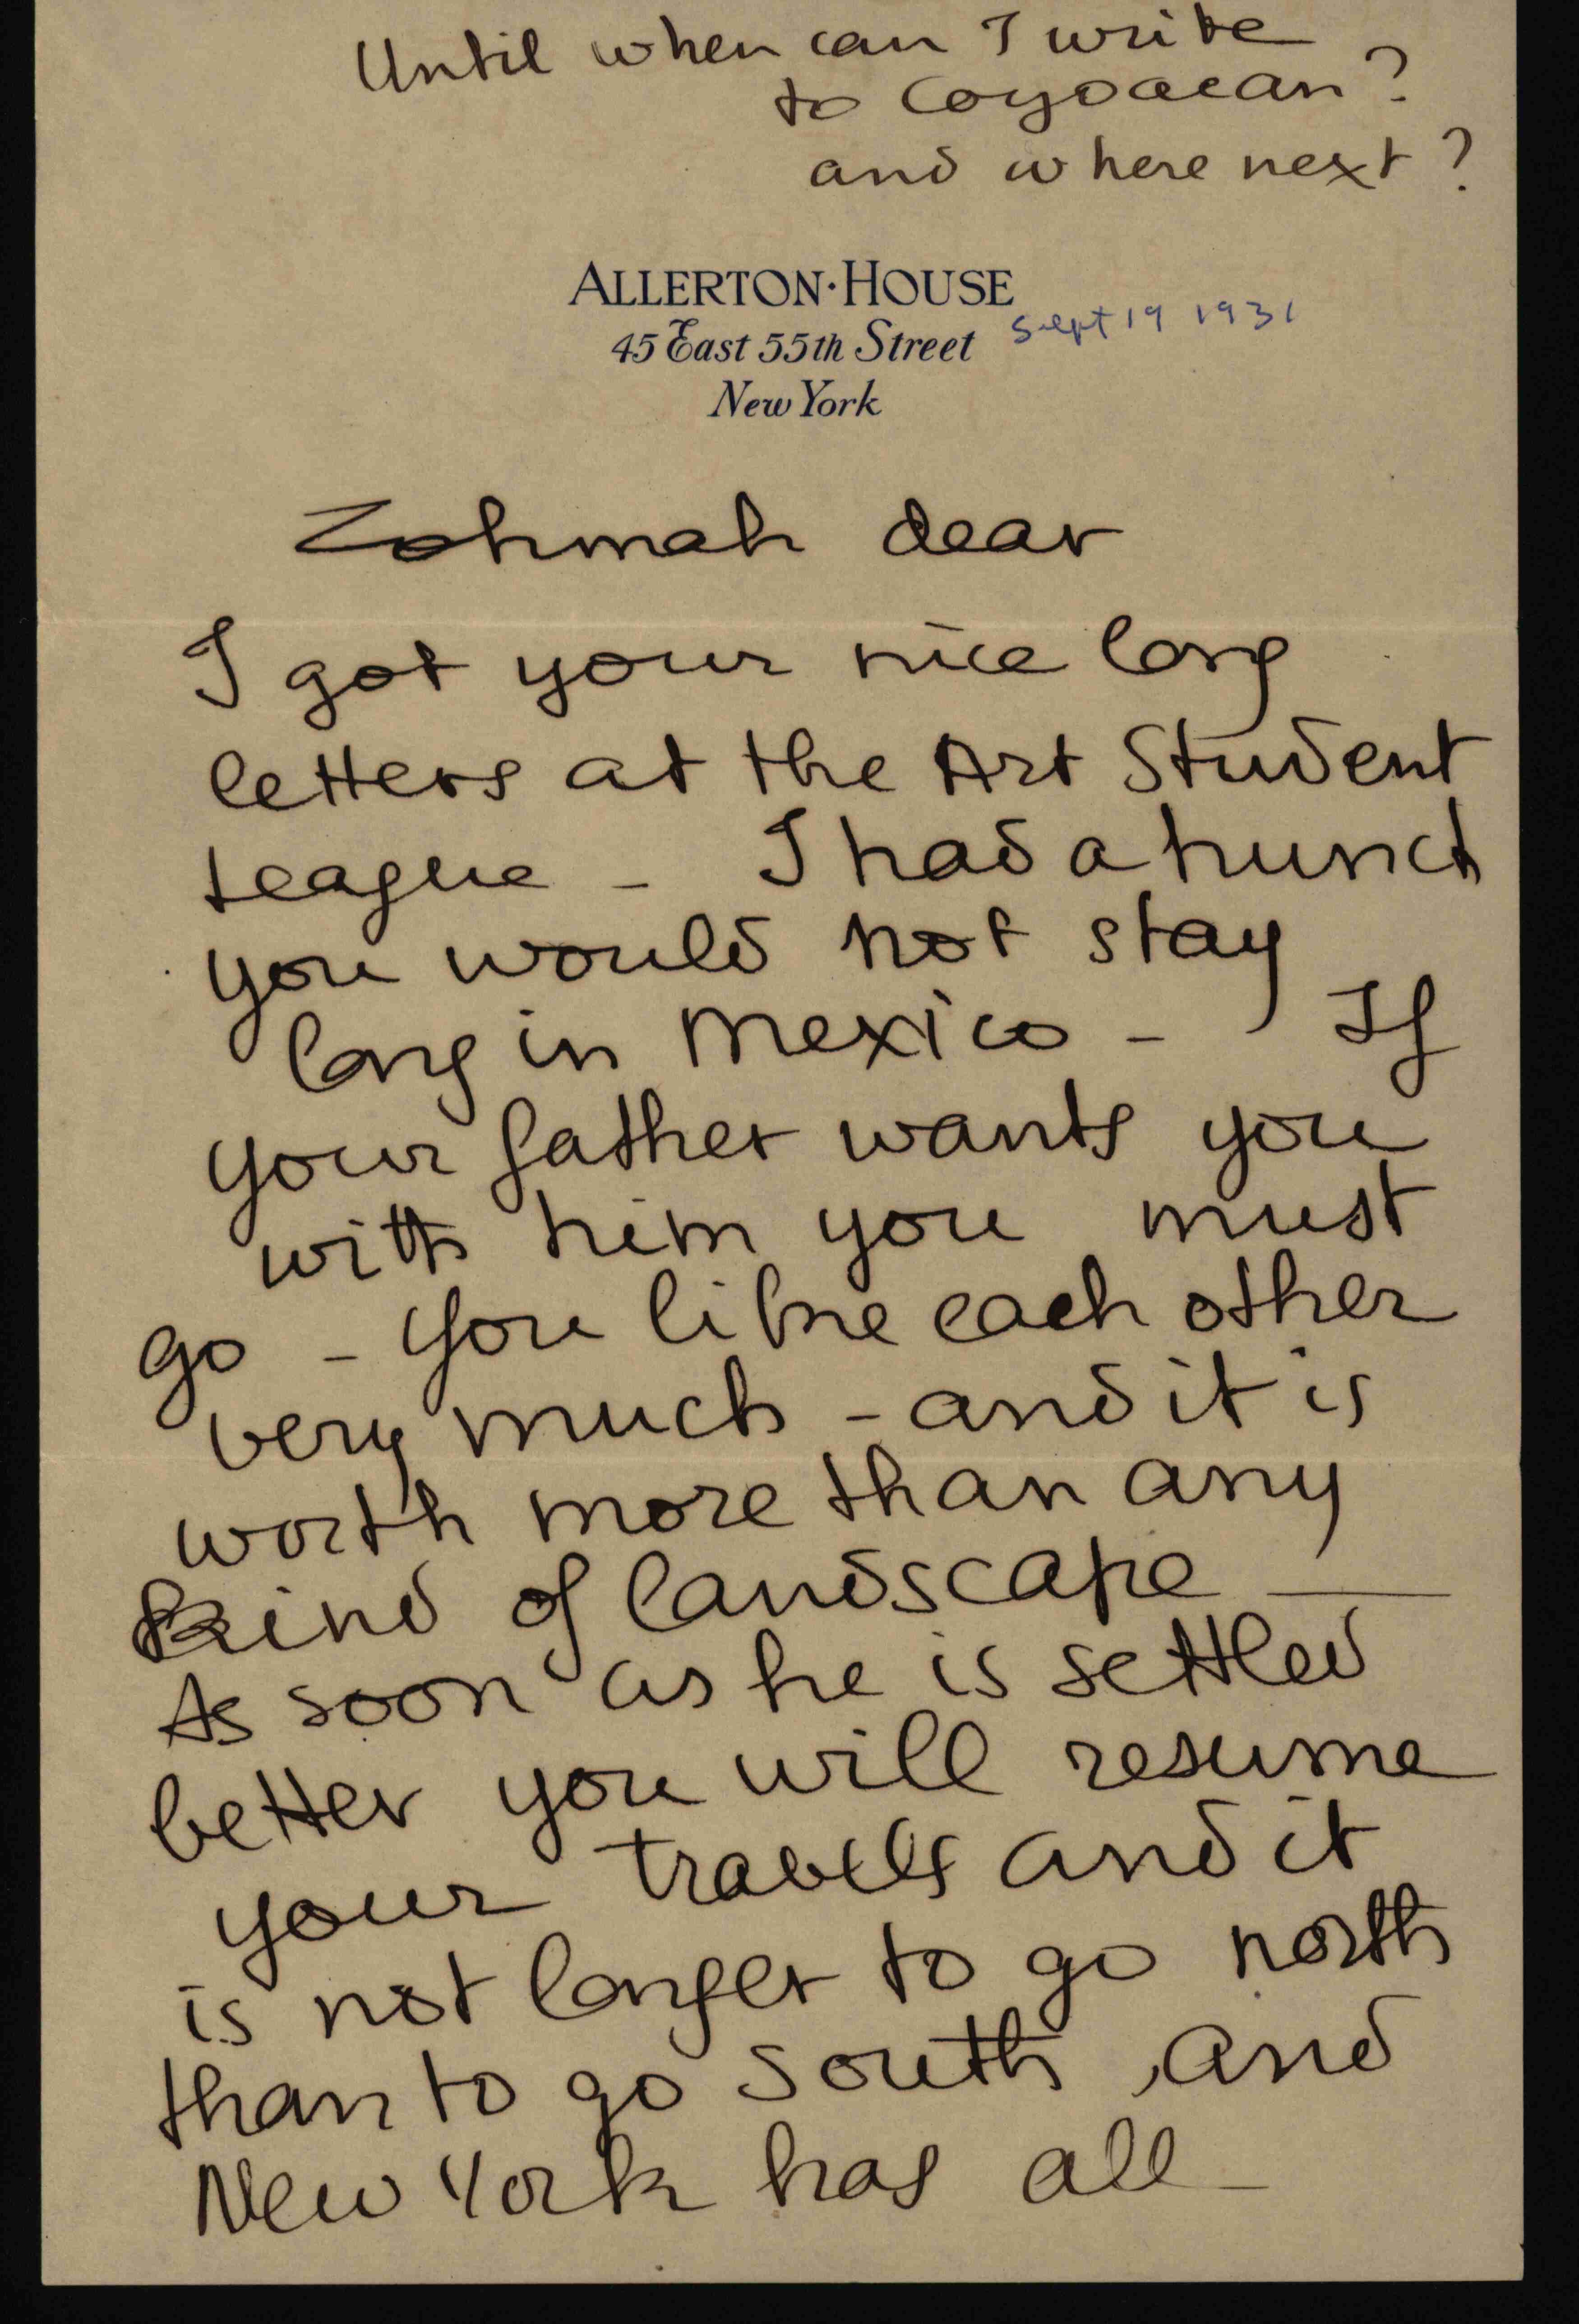 Until when can I write
to Coyoacan?
and where next?
ALLERTON·HOUSE
45 East 55th Street
Sept 19 1931
New York
Zohmah dear
I got your nice long
letters at the Art Student
League - I had a hunch
you would not stay
long in Mexico - If
your father wants you
with him you must
go - you like each other
very much - and it is
worth more than any
kind of landscape —
As soon as he is settled
better you will resume
your travels and it
is not longer to go north
than to go south, and
New York has all -